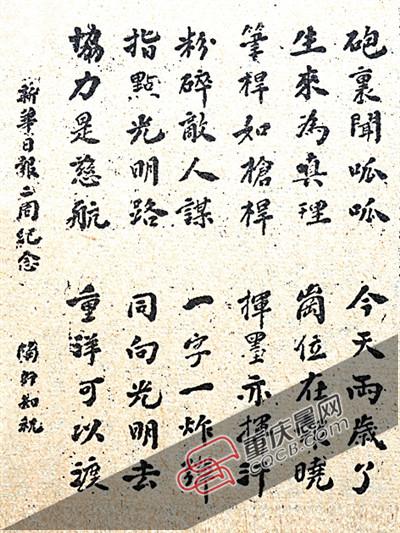 砲裏聞呱呱 今天兩歲了
生來為真理 崗位在曉
筆桿如槍桿 揮墨亦揮汗
粉碎敵人謀 一字一炸彈
指點光明路 同向光明去
協力是慈航 重洋可以渡
新華日報二周紀念 陶行知祝
重庆晨网
CQCB.COM